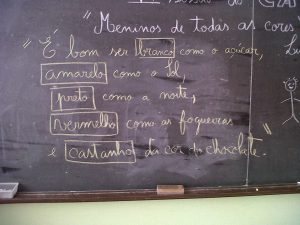 "Meninos de todas as cores
É bom ser branco como o açúcar,
amarelo como o Sol,
preto como a noite,
vermelho como as fogueiras
e castanho da cor do chocolate."